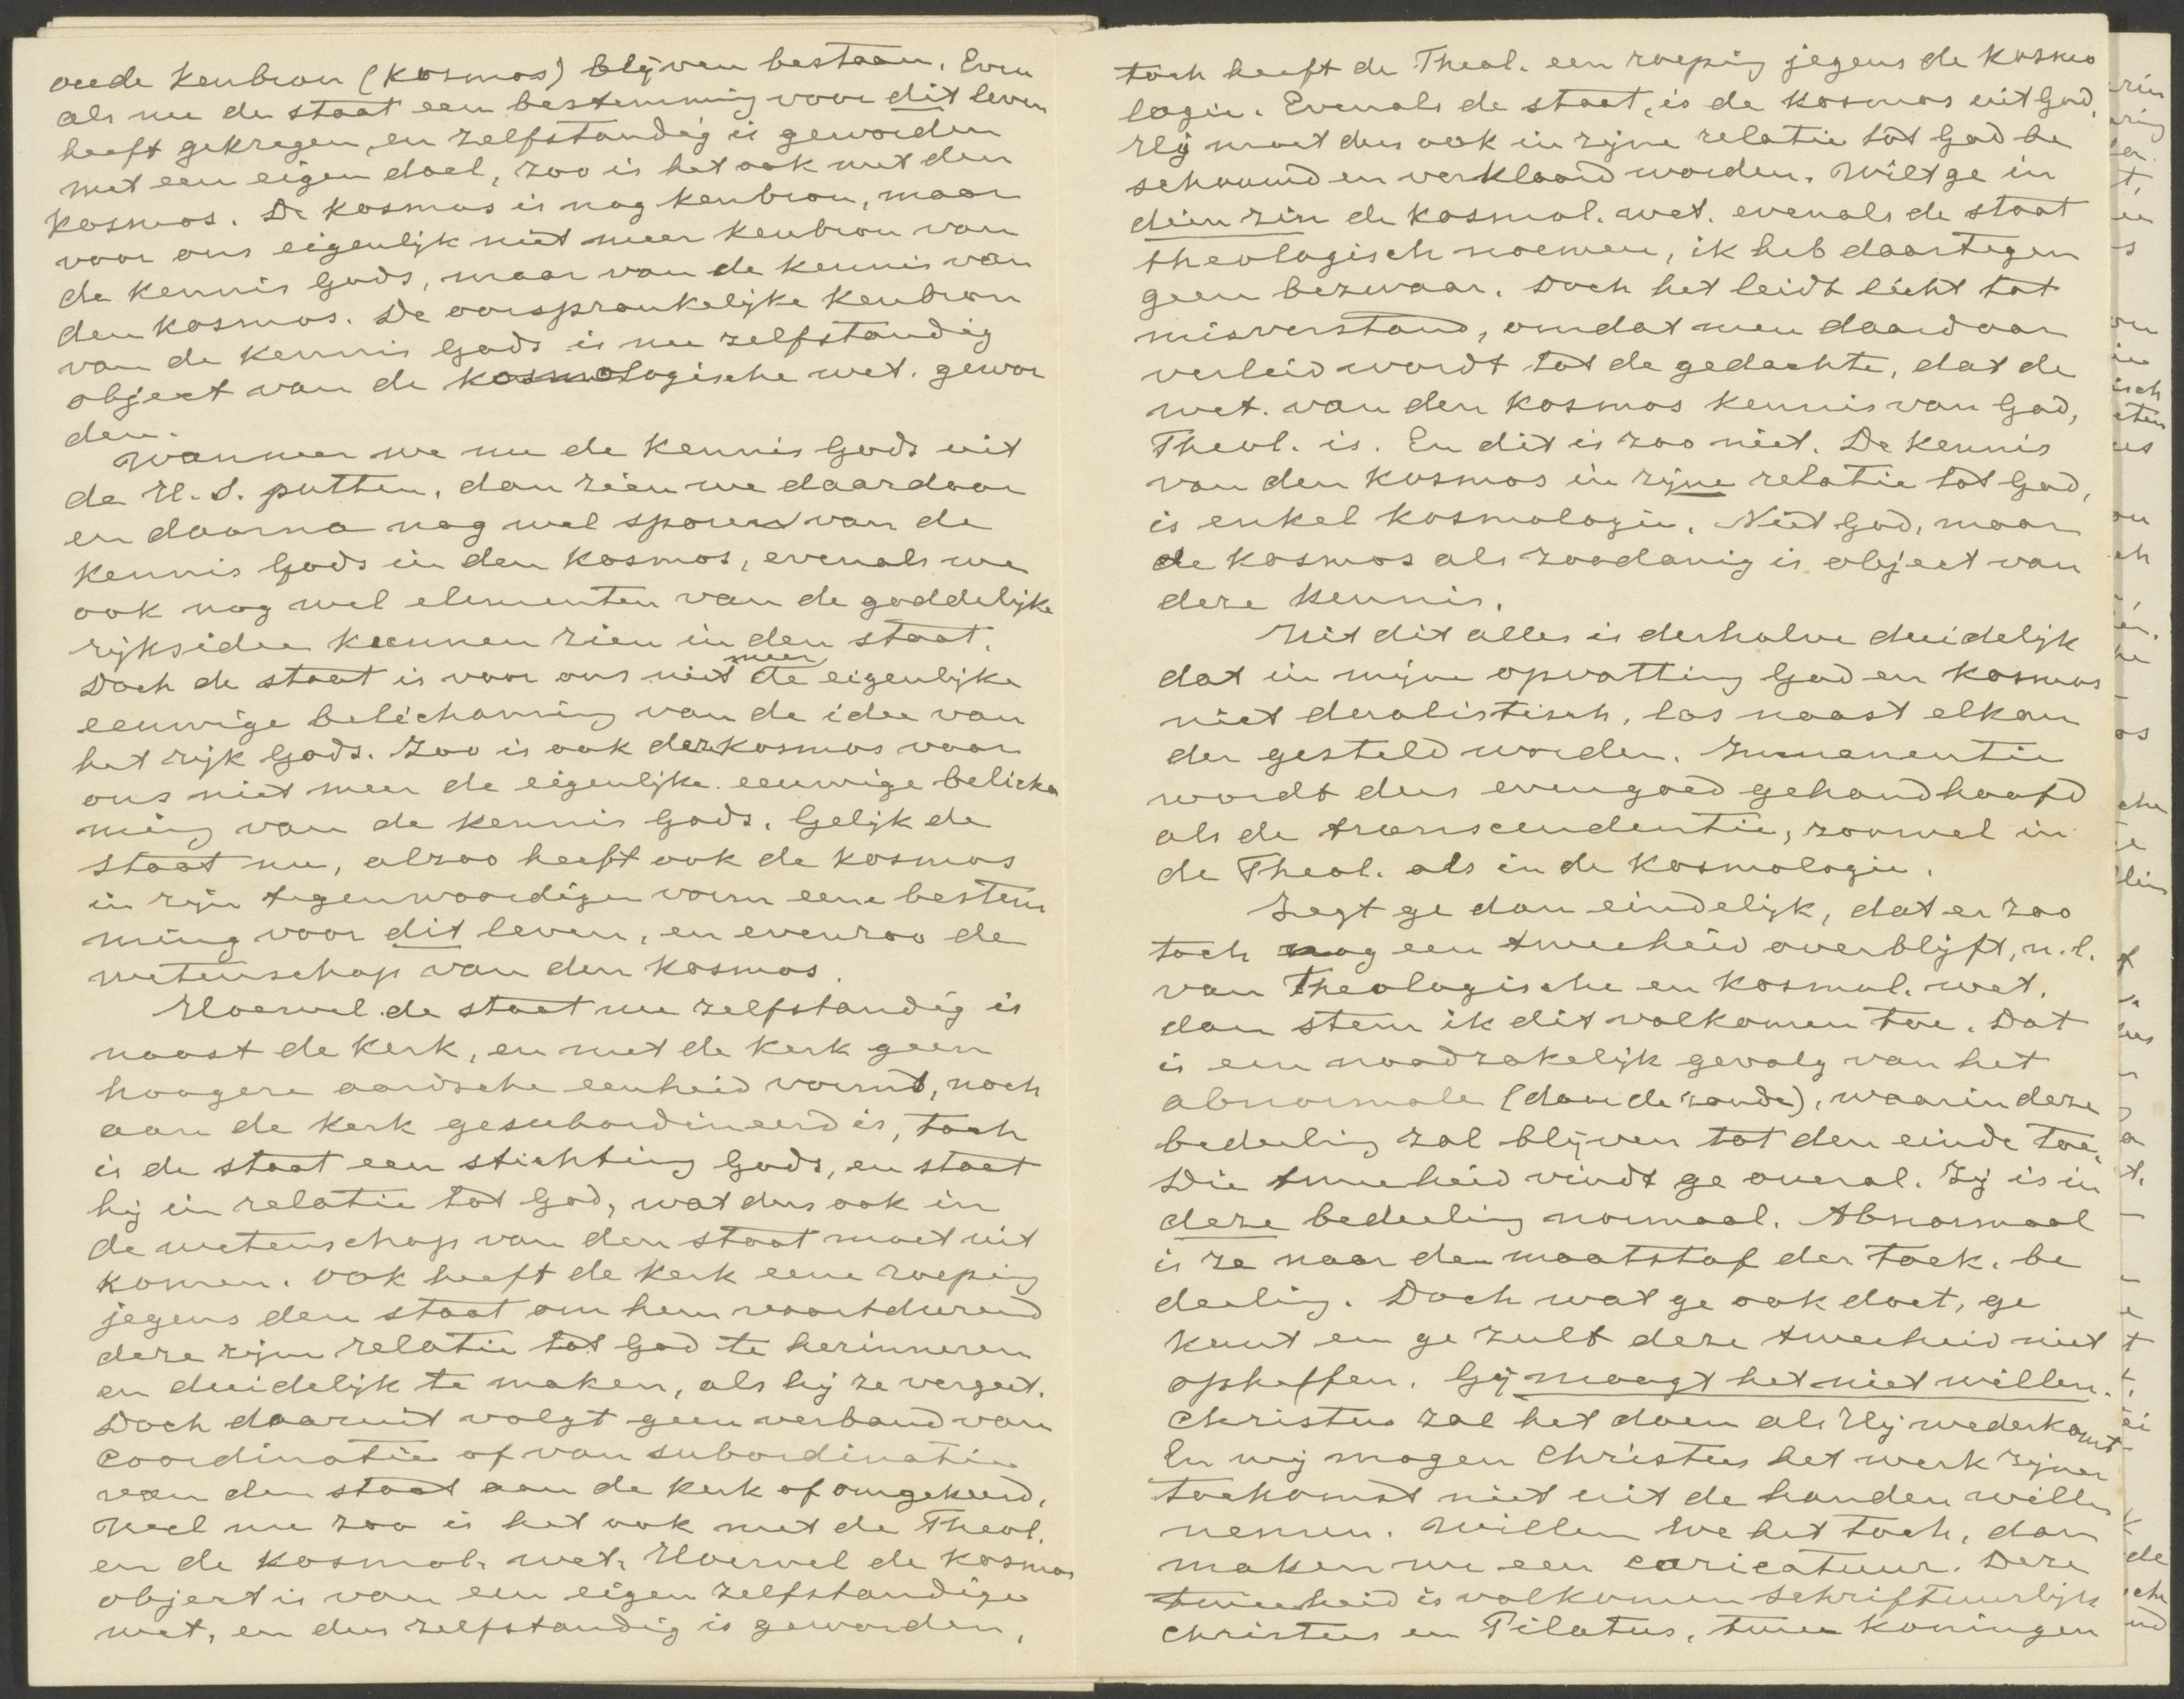 oude kenbron (kosmos) blijven bestaan. Even
als nu de staat een bestemming voor dit leven
heeft gekregen en zelfstandig is geworden
met een eigen doel, zoo is het ook met den
kosmos. De kosmos is nog kenbron, maar
voor ons eigenlijk niet meer kenbron van
de kennis Gods, maar van de kennis van
den kosmos. De oorspronkelijke kenbron
van de kennis Gods is nu zelfstandig
object van de kosmologische wet. gewor
den.
Wanneer we nu de kennis Gods uit
de H. S. putten, dan zien we daardoor
en daarna nog wel sporen van de
kennis Gods in den kosmos, evenals we
ook nog wel elementen van de goddelijke
rijksidee kunnen zien in den staat.
Doch de staat is voor ons niet meer de eigenlijke
eeuwige belichaming van de idee van
het rijk Gods. Zoo is ook de kosmos voor
ons niet meer de eigenlijke eeuwige belicha
ming van de kennis Gods. Gelijk de
staat nu, alzoo heeft ook de kosmos
in zijn tegenwoordigen vorm eene bestem
ming voor dit leven, en evenzoo de
wetenschap van den kosmos.
Hoewel de staat nu zelfstandig is
naast de kerk, en met de kerk geen
hoogere aardsche eenheid vormt, noch
aan de kerk gesubordineerd is, toch
is de staat een stichting Gods, en staat
hij in relatie tot God, wat dus ook in
de wetenschap van den staat moet uit
komen. Ook heeft de kerk eene roeping
jegens den staat om hem voortdurend
deze zijne relatie tot God te herinneren
en duidelijk te maken, als hij ze vergeet.
Doch daaruit volgt geen verband van
coordinatie of van subordinatie
van den staat aan de kerk of omgekeerd.
Welnu zoo is het ook met de Theol.
en de kosmol. wet. Hoewel de kosmos
object is van een eigen zelfstandige
wet, en dus zelfstandig is geworden,
toch heeft de Theol. een roeping jegens de kosmo
logie. Evenals de staat, is de kosmos uit God.
Hij moet dus ook in zijne relatie tot God be
schouwd en verklaard worden. Wilt ge in
dien zin de kosmol. wet. evenals de staat
theologisch noemen, ik heb daartegen
geen bezwaar. Doch het leidt licht tot
misverstand, omdat men daardoor
verleid wordt tot de gedachte, dat de
wet. van den kosmos kennis van God,
Theol. is. En dit is zoo niet. De kennis
van den kosmos in zijne relatie tot God,
is enkel kosmologie. Niet God, maar
de kosmos als zoodanig is object van
deze kennis.
Uit dit alles is derhalve duidelijk
dat in mijne opvatting God en kosmos
niet dualistisch, los naast elkan
der gesteld worden. Immanentie
wordt dus evengoed gehandhaafd
als de transcendentie, zoowel in
de Theol. als in de kosmologie.
Zegt ge dan eindelijk, dat er zoo
toch nog een tweeheid overblijft, n.l.
van Theologische en kosmol. wet.
dan stem ik dit volkomen toe. Dat
is een noodzakelijk gevolg van het
abnormale (door de zonde), waarin deze
bedeeling zal blijven tot den einde toe.
Die tweeheid vindt ge overal. Zij is in
deze bedeeling normaal. Abnormaal
is ze naar den maatstaf der toek. be
deeling. Doch wat ge ook doet, ge
kunt en ge zult deze tweeheid niet
opheffen. Gij moogt het niet willen.
Christus zal het doen als Hij wederkomt
En wij mogen Christus het werk zijner
toekomst niet uit de handen willen
nemen. Willen we het toch, dan
maken we een caricatuur. Deze
tweeheid is volkomen schriftuurlijk
Christus en Pilatus, twee koningen